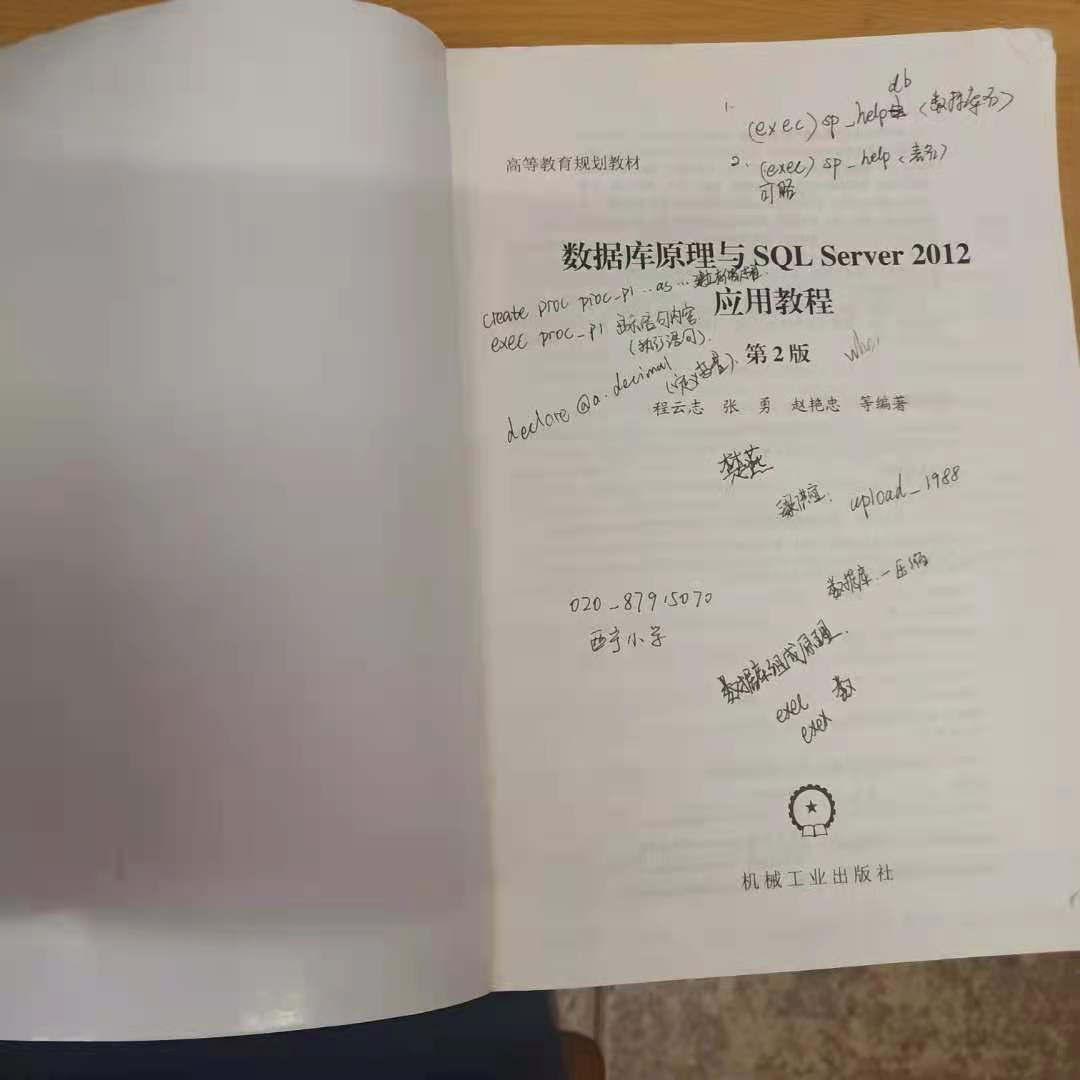 1. (exec) sp_helpdb (数据库名)
2. (exec) sp_help (表名)
可略
高等教育规划教材
数据库原理与 SQL Server 2012
应用教程
create proc proc_p1 ... as ...
exec proc_p1 显示语句内容
(执行语句).
第 2 版
declare @a. decimal (定义变量).
程云志 张 勇 赵艳忠 等编著
樊燕
upload_1988
数据库.一压缩
020-87915070
西亭小学
数据库组成原理.
exec 数
exex
机械工业出版社